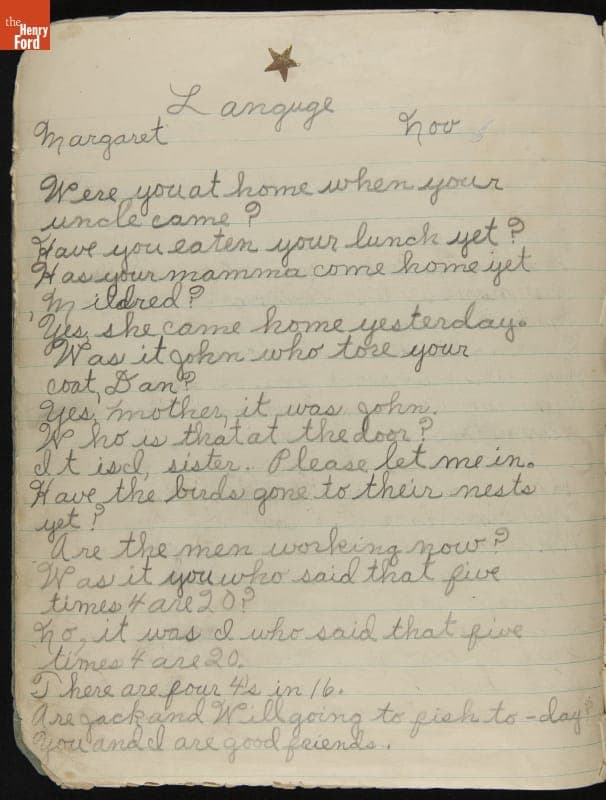 the
Henry
Ford
Languge
Margaret Nov
Were you at home when your
uncle came?
Have you eaten your lunch yet?
Has your mamma come home yet
Mildred?
Yes, she came home yesterday.
Was it John who tore your
coat, Dan?
Yes, mother, it was John.
Who is that at the door?
It is I, sister. Please let me in.
Have the birds gone to their nests
yet?
Are the men working now?
Was it you who said that five
times 4 are 20?
No, it was I who said that five
times 4 are 20.
There are four 4's in 16.
Are Jack and Will going to fish to-day?
You and I are good friends.